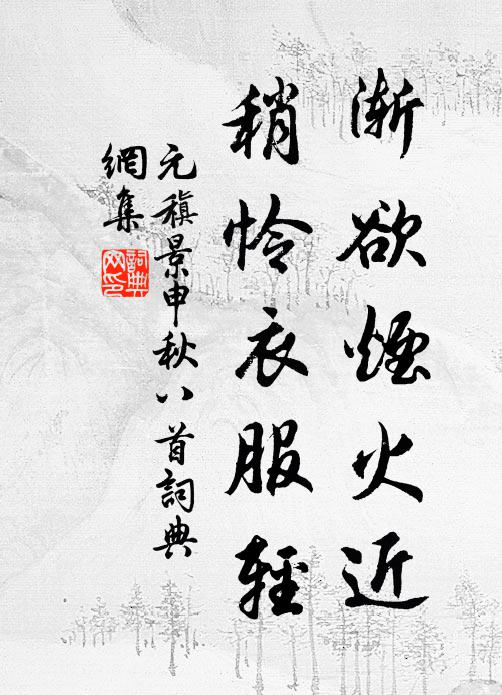 渐欲煙火近
稍怜衣服轻
元稹景申秋八首詞典
網集
詞典
网印